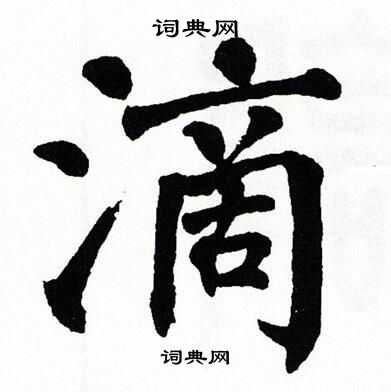 词典网
滴
词典网